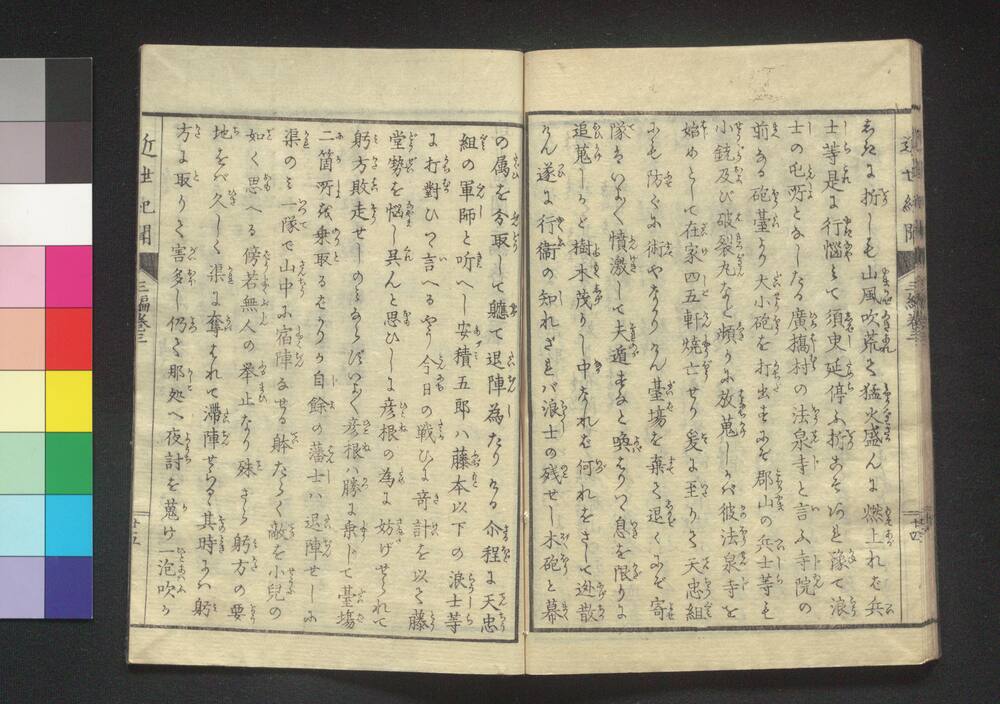 近世紀聞
三編巻三
廿四
しきに折しも山風吹荒て猛火盛んに燃上れば兵
士等是に行悩みて須臾延停ふ折こそあれ豫て浪
士の屯所となしたる廣橋村の法泉寺と言ふ寺院の
前なる砲臺より大小砲を打出すにぞ郡山の兵士等も
小銃及び破裂丸など頻りに放蒐しかば彼法泉寺を
始めとして在家四五軒焼亡せり爰に至りてぞ天忠組
にも防ぐに術やなかりけん臺場を棄て退くにぞ寄
隊はいよいよ憤激して夫遁すなと喚はりつつ息を限りに
追蒐しかど樹木茂りし中なれば何れをさして迯散
けん遂に行衞の知れざれバ浪士の残せし木砲と幕
の属を分取して軈て退陣為たりける 介程に天忠
組の軍師と听へし安積五郎ハ藤本以下の浪士等
に打對ひつつ言へるやう今日の戦ひに奇計を以て藤
堂勢を悩し呉んと思ひしに彦根の為に妨げせられて
躬方敗走せしのみならずいよいよ彦根ハ勝に乗じて臺場
二箇所を乗取るものから自餘の藩士ハ退陣せしに
渠のミ一隊で山中に宿陣なせる躰たらく敵を小兒の
如く思へる傍若無人の挙止なり殊さら躬方の要
地をバ久しく渠に奪はれて滞陣せらるる其時にハ躬
方に取りて害多し仍て那処へ夜討を蒐け一泡吹か
近世紀聞
三編巻三
廿五